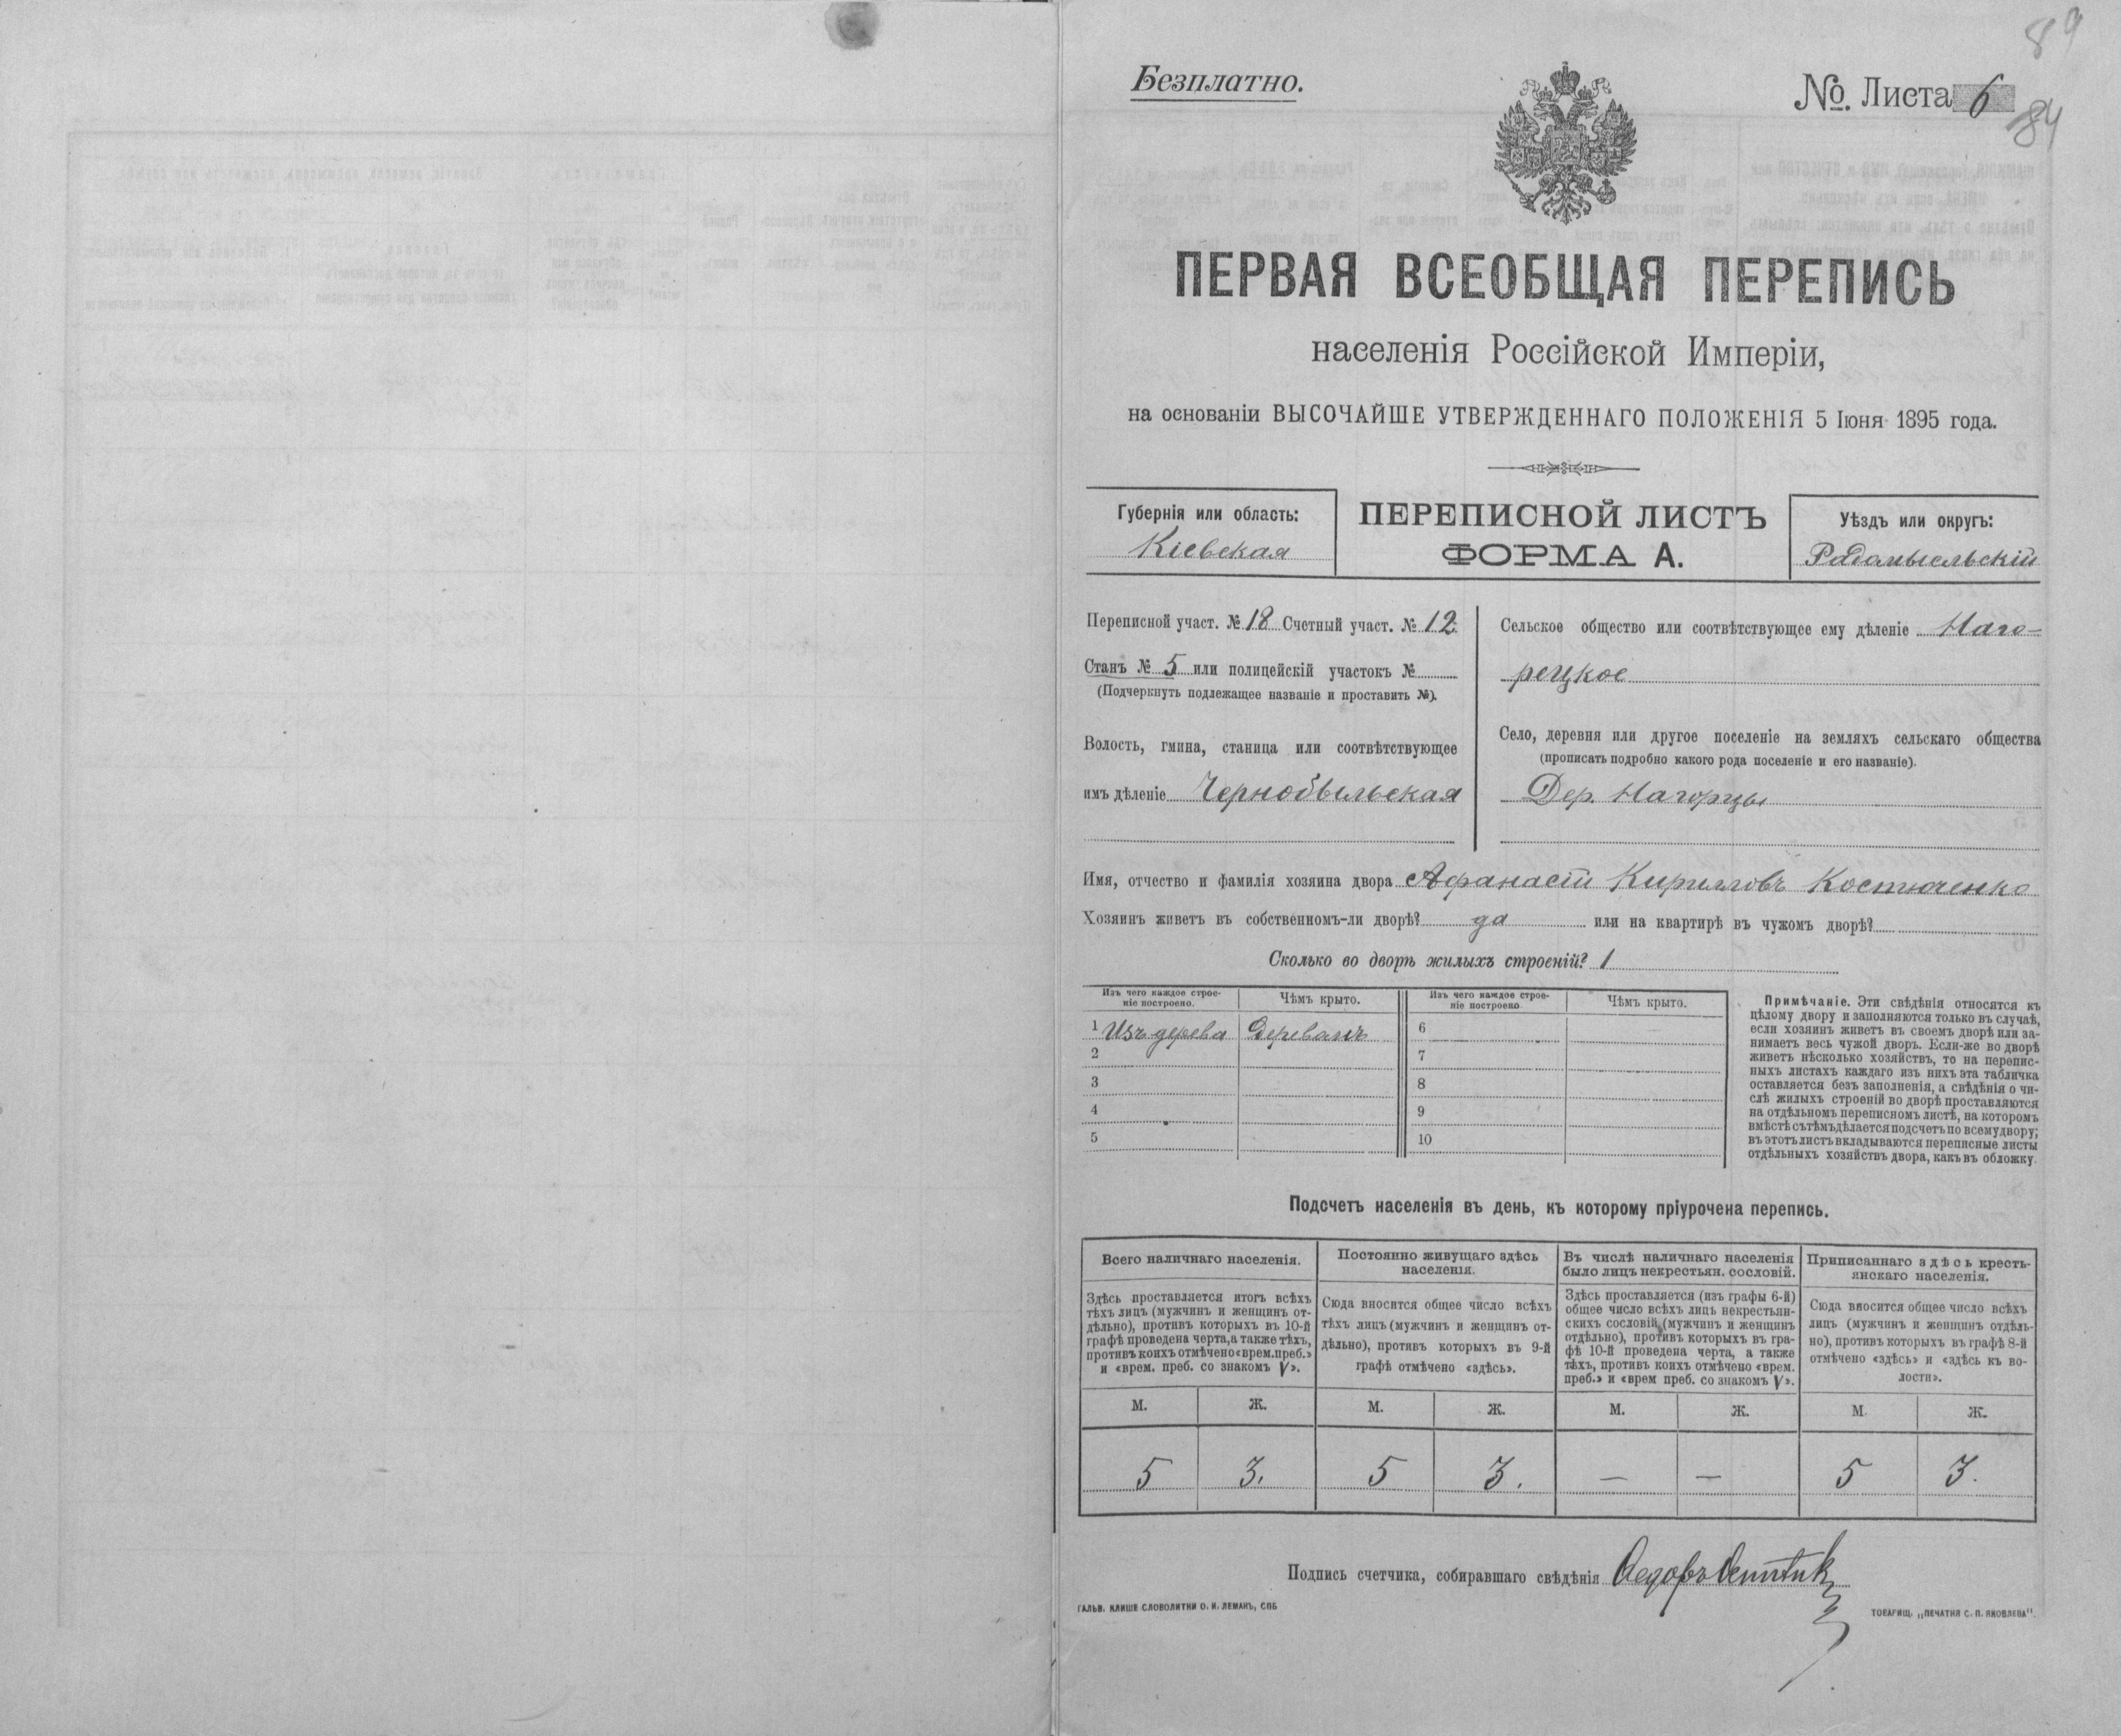 89
Безплатно.
№. Листа 6
84
ПЕРВАЯ ВСЕОБЩАЯ ПЕРЕПИСЬ
населенія Россійской Имперіи,
на основаніи ВЫСОЧАЙШЕ УТВЕРЖДЕННАГО ПОЛОЖЕНІЯ 5 Іюня 1895 года.
Губернія или область:
Кіевская
ПЕРЕПИСНОЙ ЛИСТЪ
ФОРМА А.
Уѣздъ или округъ:
Радомысльскій
Переписной участ. № 18 Счетный участ. № 12
Станъ № 5 или полицейскій участокъ №
(Подчеркнуть подлежащее названіе и проставить №).
Волость, гмина, станица или соотвѣтствующее
имъ дѣленіе Чернобыльская
Сельское общество или соотвѣтствующее ему дѣленіе Наго-
рецкое
Село, деревня или другое поселеніе на земляхъ сельскаго общества
(прописать подробно какого рода поселеніе и его названіе).
Дер. Нагорцы
Имя, отчество и фамилія хозяина двора Афанасій Кирилловъ Костюченко
Хозяинъ живетъ въ собственномъ-ли дворѣ? да или на квартирѣ въ чужомъ дворѣ?
Сколько во дворѣ жилыхъ строеній? 1
Изъ чего каждое строе-
ніе построено.
Чѣмъ крыто.
Изъ чего каждое строе-
ніе построено
Чѣмъ крыто.
1 Изъ дерева Деревомъ 6
2 7
3 8
4 9
5 10
Примѣчаніе. Эти свѣдѣнія относятся къ
цѣлому двору и заполняются только въ случаѣ,
если хозяинъ живетъ въ своемъ дворѣ или за-
нимаетъ весь чужой дворъ. Если-же во дворѣ
живетъ нѣсколько хозяйствъ, то на перепис-
ныхъ листахъ каждаго изъ нихъ эта табличка
оставляется безъ заполненія, а свѣдѣнія о чи-
слѣ жилыхъ строеній во дворѣ проставляются
на отдѣльномъ переписномъ листѣ, на которомъ
вмѣстѣ съ тѣмъ дѣлается подсчетъ по всему двору;
въ этотъ листъ вкладываются переписные листы
отдѣльныхъ хозяйствъ двора, какъ въ обложку.
Подсчетъ населенія въ день, къ которому пріурочена перепись.
Всего наличнаго населенія.
Здѣсь проставляется итогъ всѣхъ
тѣхъ лицъ (мужчинъ и женщинъ от-
дѣльно), противъ которыхъ въ 10-й
графѣ проведена черта, а также тѣхъ,
противъ коихъ отмѣчено «врем. преб.»
и «врем. преб. со знакомъ V».
Постоянно живущаго здѣсь
населенія.
Сюда вносится общее число всѣхъ
тѣхъ лицъ (мужчинъ и женщинъ от-
дѣльно), противъ которыхъ въ 9-й
графѣ отмѣчено «здѣсь».
Въ числѣ наличнаго населенія
было лицъ некрестьян. сословій.
Здѣсь проставляется (изъ графы 6-й)
общее число всѣхъ лицъ некрестьян-
скихъ сословій (мужчинъ и женщинъ
отдѣльно), противъ которыхъ въ гра-
фѣ 10-й проведена черта, а также
тѣхъ, противъ коихъ отмѣчено «врем.
преб.» и «врем преб. со знакомъ V».
Приписаннаго здѣсь кресть-
янскаго населенія.
Сюда вносится общее число всѣхъ
лицъ (мужчинъ и женщинъ отдѣль-
но), противъ которыхъ въ графѣ 8-й
отмѣчено «здѣсь» и «здѣсь къ во-
лости».
М. Ж. М. Ж. М. Ж. М. Ж.
5 3. 5 3. — — 5 3.
Подпись счетчика, собиравшаго свѣдѣнія Федоръ
ГАЛЬВ. КЛИШЕ СЛОВОЛИТНИ О. И. ЛЕМАНЪ, СПБ
ТОВАРИЩ. „ПЕЧАТНЯ С. П. ЯКОВЛЕВА".